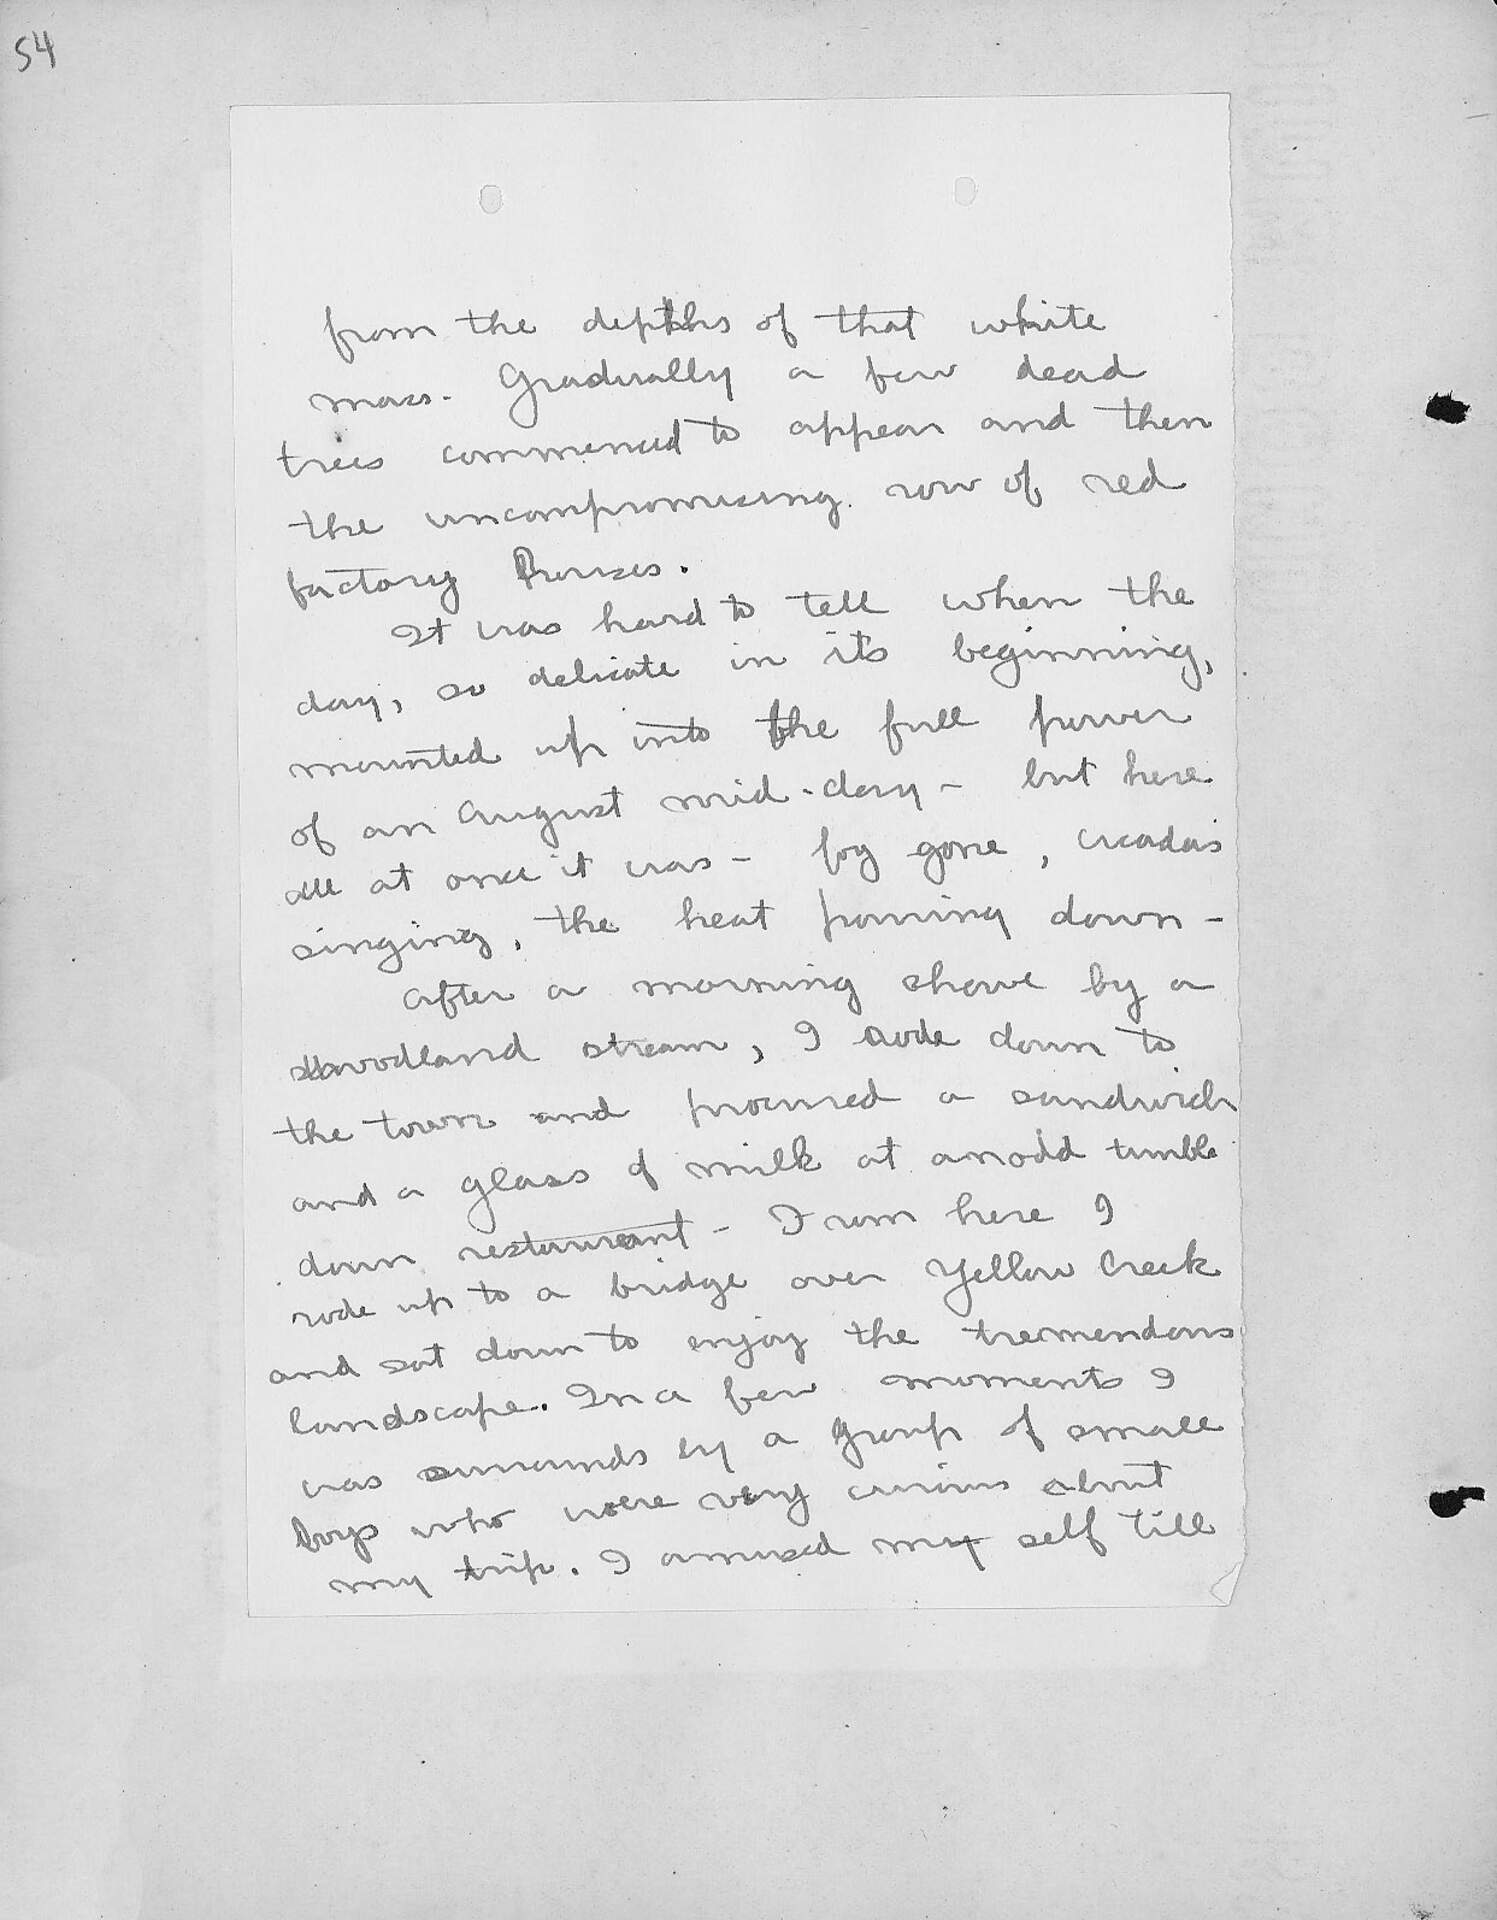 54
from the depths of that white
mass. Gradually a few dead
trees commenced to appear and then
the uncompromising row of red
factory houses.
It was hard to tell when the
day, so delicate in its beginning,
mounted up into the full power
of an August mid-day - but here
all at once it was - fog gone, cicadas
singing, the heat pouring down -
After a morning shave by a
woodland stream, I rode down to
the town and procured a sandwich
and a glass of milk at an odd tumble
down restaurant - From here I
rode up to a bridge over Yellow Creek
and sat down to enjoy the tremendous
landscape. In a few moments I
was surrounds by a group of small
boys who were very curious about
my trip. I amused my self till